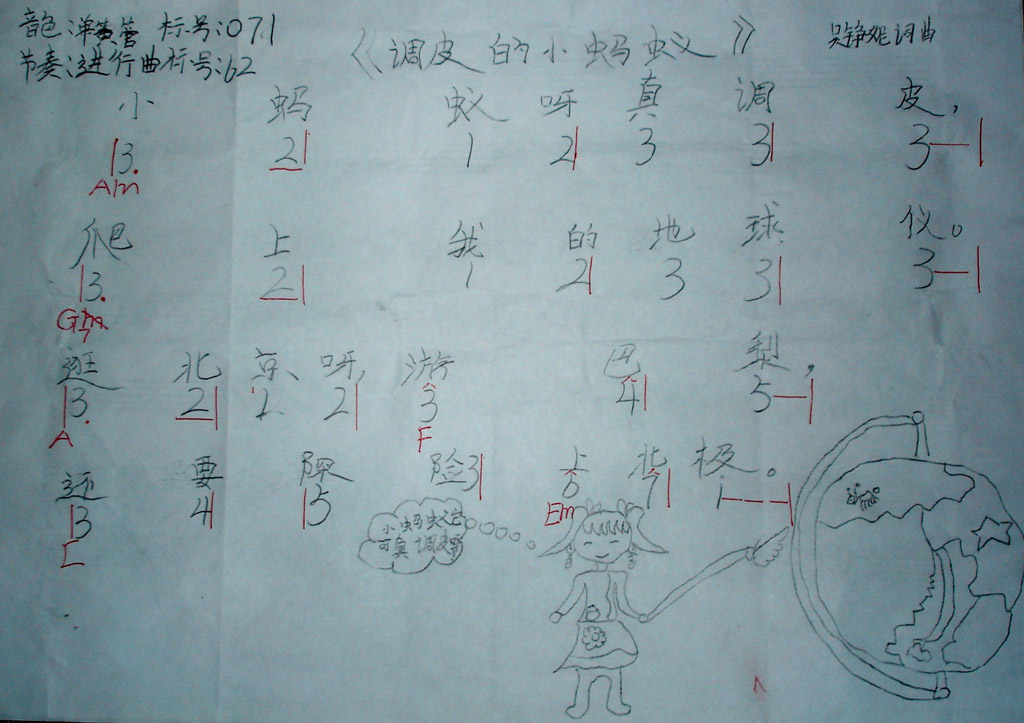 音色:单簧管 标号:071
节奏:进行曲标号:62
《调皮的小蚂蚁》
词曲
小 蚂 蚁 呀 真 调 皮,
|3. 2| 1 2| 3 3| 3—|
Am
爬 上 我 的 地 球 仪。
|3. 2| 1 2| 3 3| 3—|
逛 北 京、呀, 游 巴 梨,
|3. 2| 1. 2| 3 4| 5—|
A F
还 要 探 险 上 北 极。
|3 4| |5 3| 6 7| i---|
Em
C
小蚂蚁它
可真调皮